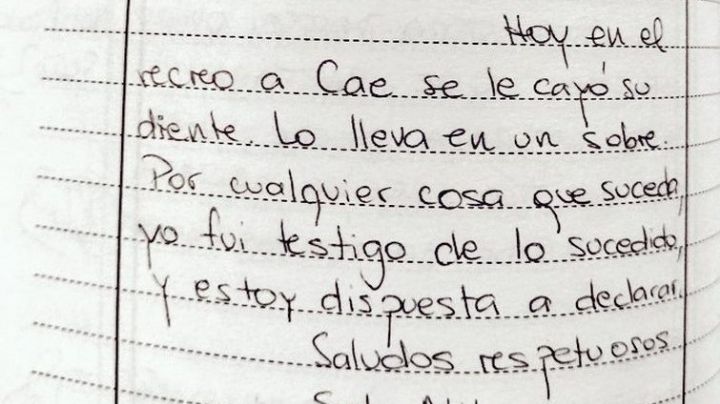 Hoy en el
recreo a Cae se le cayó su
diente. Lo lleva en un sobre.
Por cualquier cosa que suceda,
yo fui testigo de lo sucedido,
y estoy dispuesta a declarar.
Saludos respetuosos